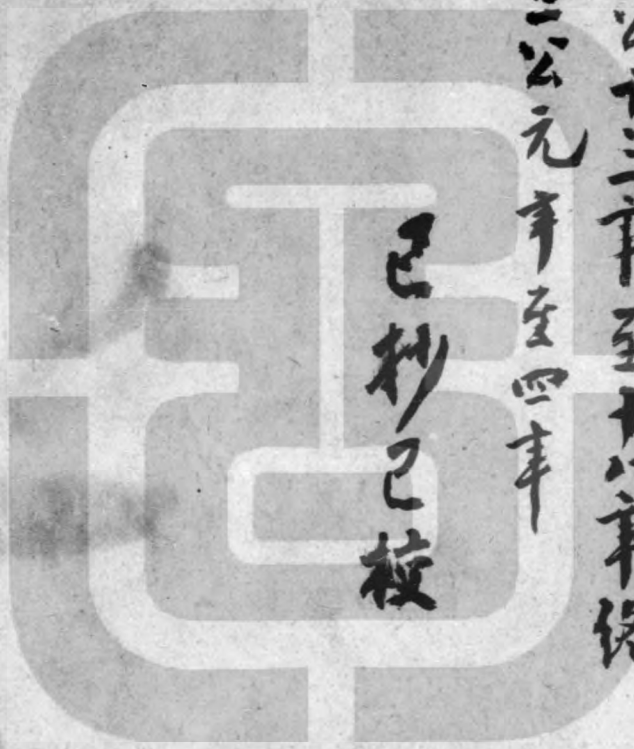 公十三年至十八年終
公元年至四年
已抄已校